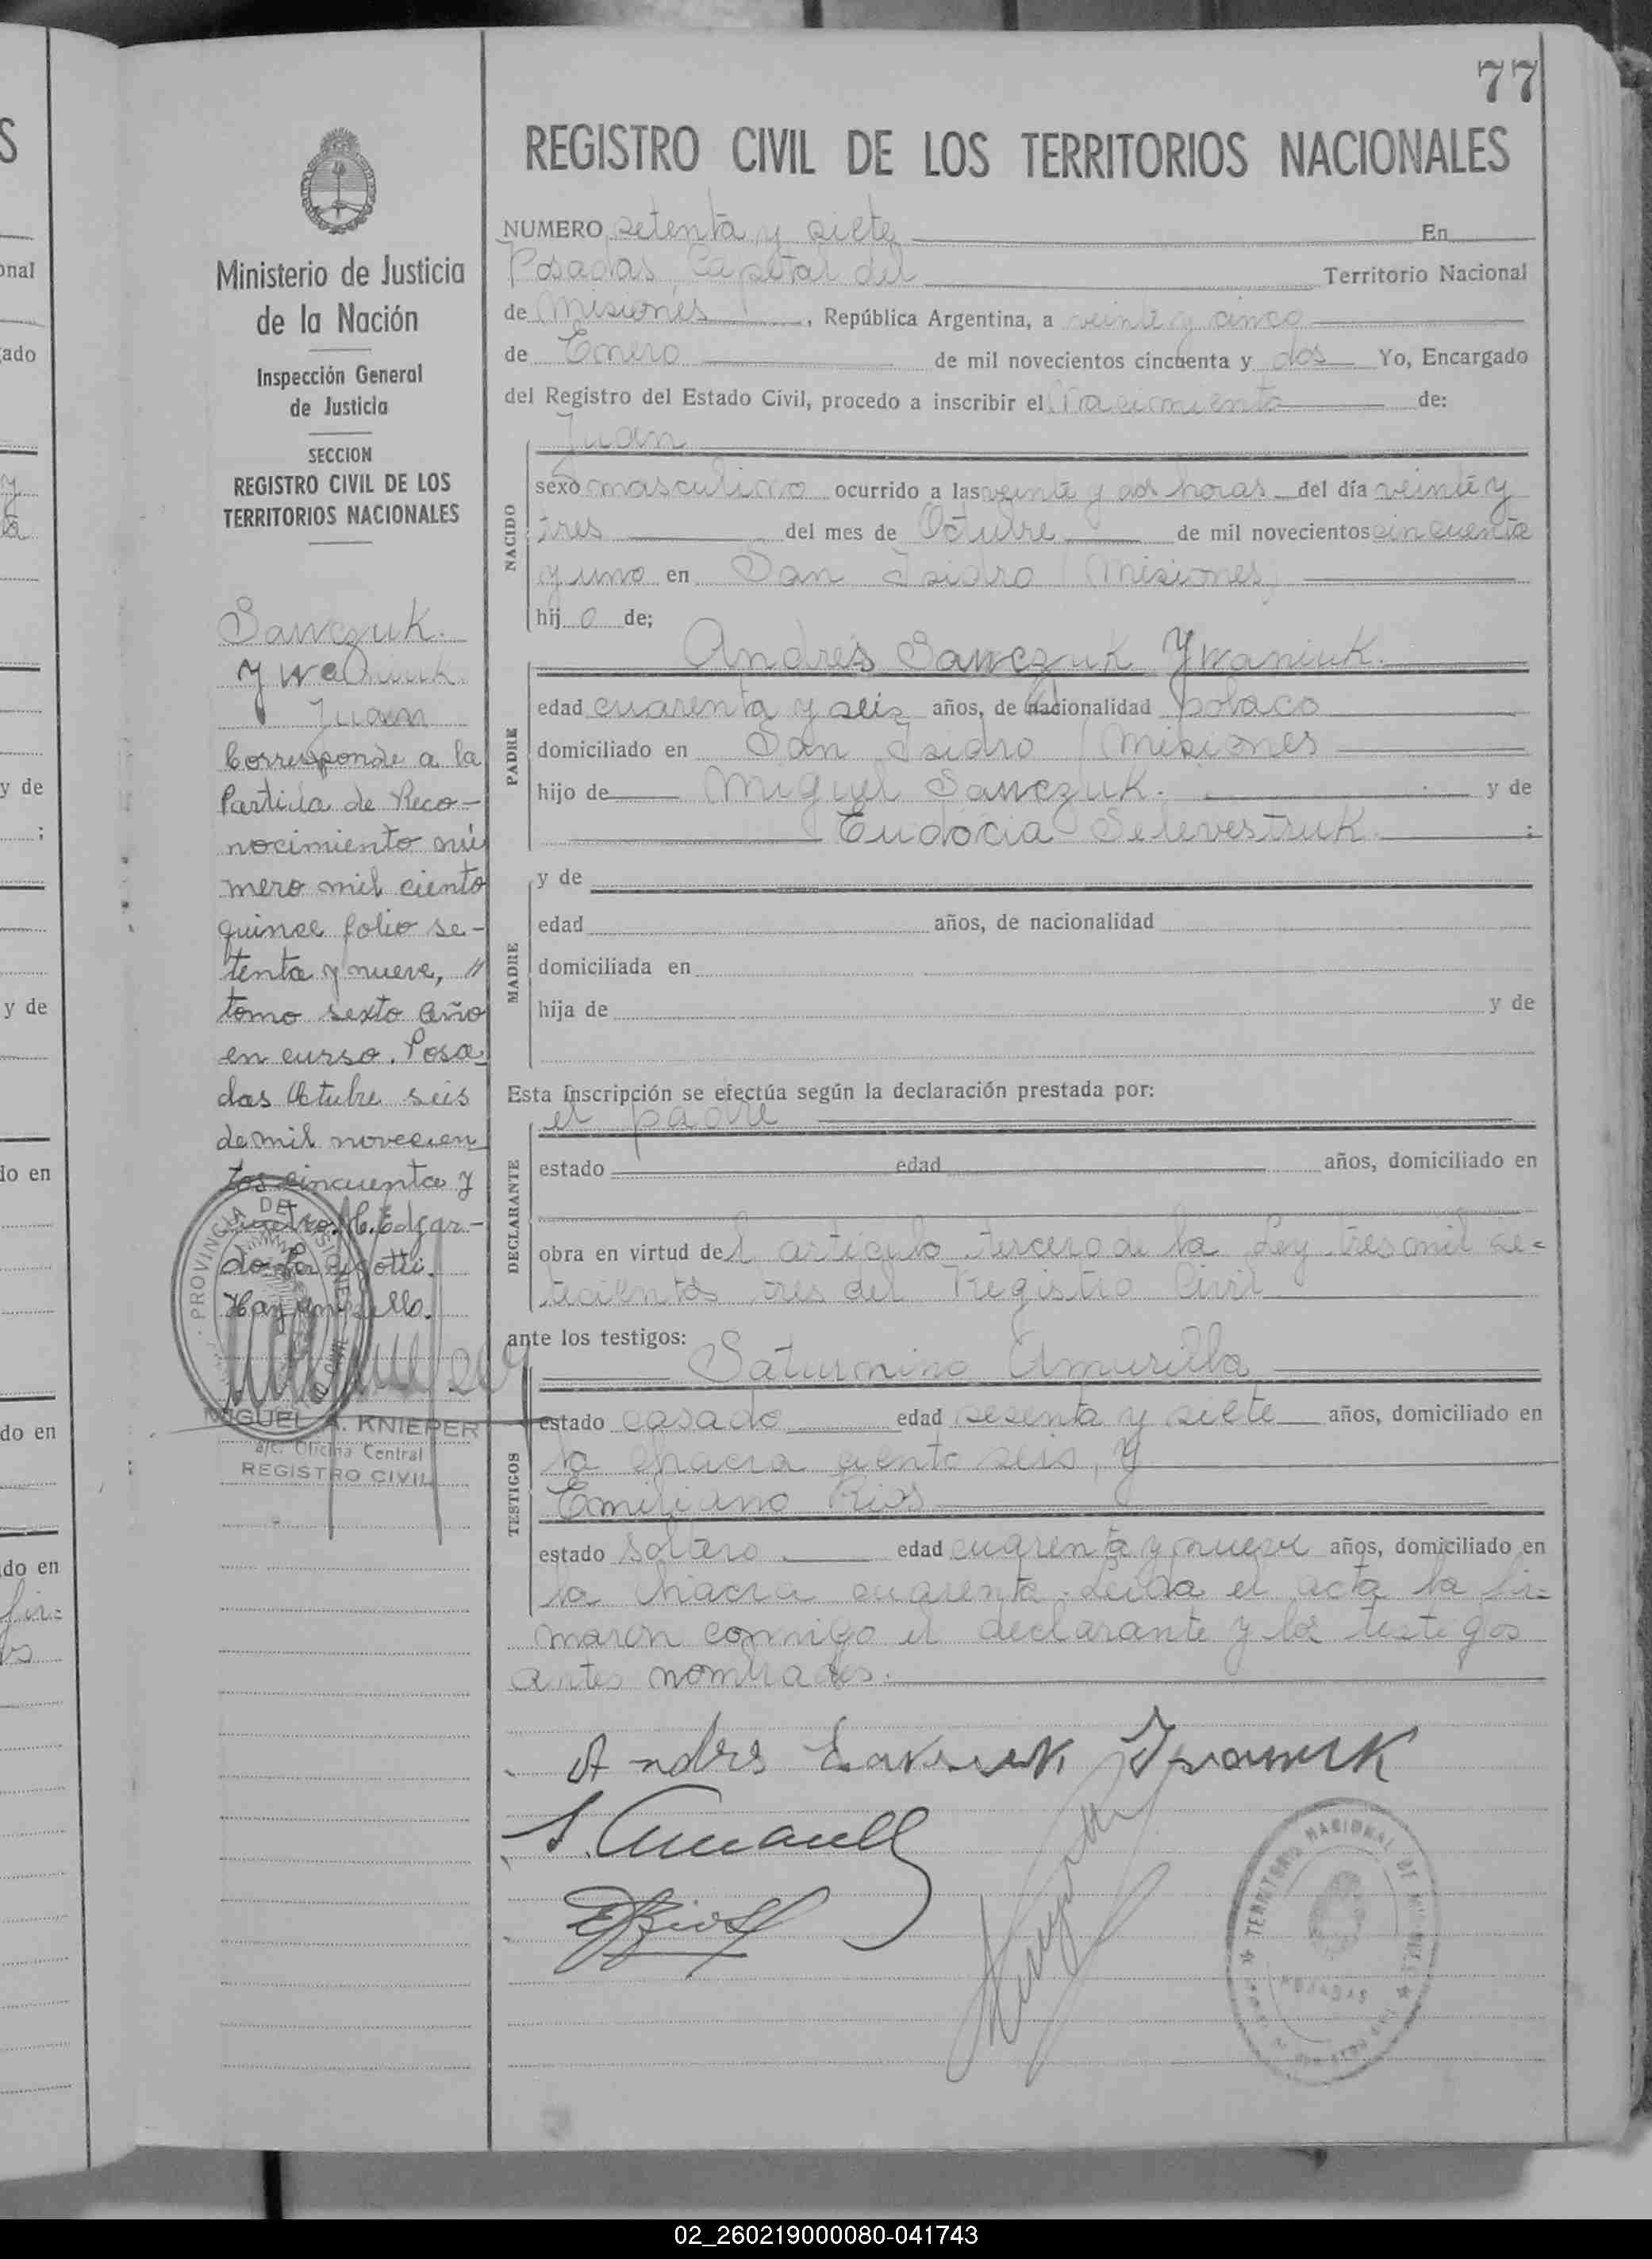 77
REGISTRO CIVIL DE LOS TERRITORIOS NACIONALES
Ministerio de Justicia
de la Nación
Inspección General
de Justicia
SECCION
REGISTRO CIVIL DE LOS
TERRITORIOS NACIONALES
Sawczuk.
Ywaniuk.
Juan
Corresponde a la
Partida de Reco-
nocimiento nú
mero mil ciento
quince folio se-
tenta y nueve,
tomo sexto año
en curso. Posa
das Octubre seis
de mil novecien
tos cincuenta y
cuatro. Edgar-
do
Hay un sello.
PROVINCIA DE MISIONES
MIGUEL A. KNIEPER
a/c. Oficina Central
REGISTRO CIVIL
NUMERO setenta y siete En
Posadas Capital del Territorio Nacional
de Misiones, República Argentina, a veinte y cinco
de Enero de mil novecientos cincuenta y dos Yo, Encargado
del Registro del Estado Civil, procedo a inscribir el Nacimiento de:
NACIDO
Juan
sexo masculino ocurrido a las veinte y dos horas del día veinte y
tres del mes de Octubre de mil novecientos cincuenta
y uno en San Isidro (Misiones)
hijo de;
PADRE
Andrés Sawczuk Ywaniuk.
edad cuarenta y seis años, de nacionalidad polaco
domiciliado en San Isidro (Misiones
hijo de Miguel Sawczuk. y de
Eudocia Selevestruk :
MADRE
y de
edad años, de nacionalidad
domiciliada en
hija de y de
Esta Inscripción se efectúa según la declaración prestada por:
DECLARANTE
el padre
estado edad años, domiciliado en
obra en virtud del articulo tercero de la Ley tres mil se-
tecientos tres del Registro Civil
ante los testigos:
TESTIGOS
Saturnino Amarilla
estado casado edad sesenta y siete años, domiciliado en
la chacra ciento seis, y
Emiliano Rios
estado soltero edad cuarenta y nueve años, domiciliado en
la chacra cuarenta. Leida el acta la fir-
maron conmigo el declarante y los testigos
antes nombrados.
Andres Savczuk Iwaniuk
S. Amarilla
E Rios
TERRITORIO NACIONAL DE MISIONES
POSADAS
S
onal
gado
y de
;
y de
do en
do en
do en
fir-
02_260219000080-041743